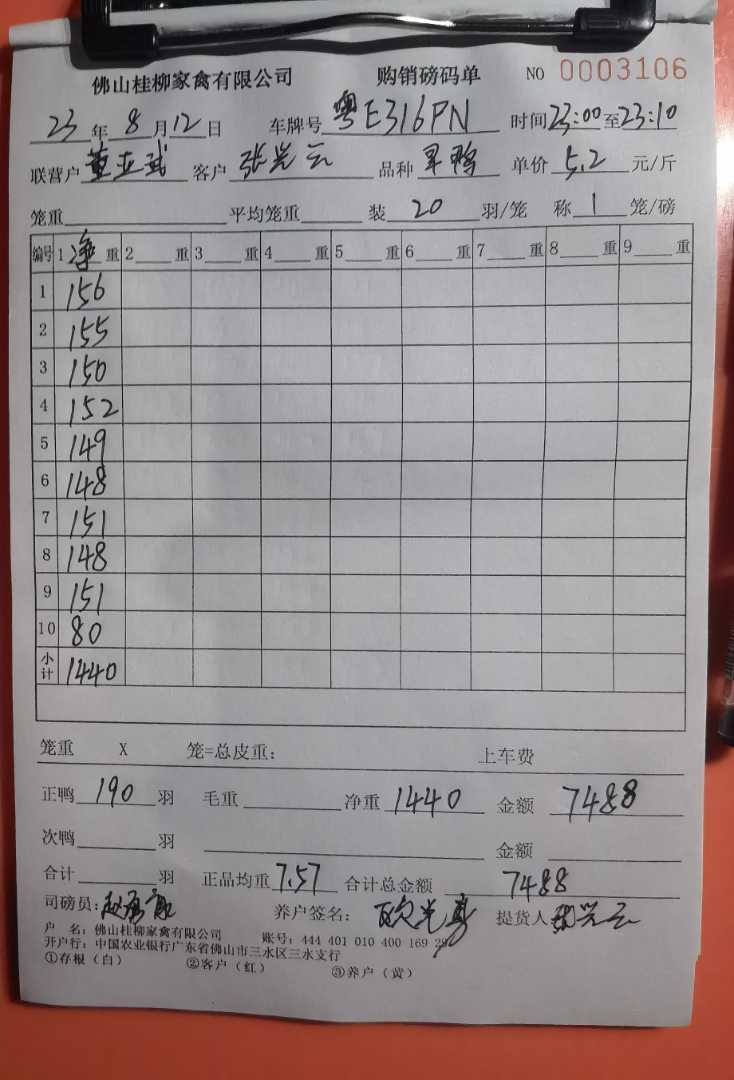 佛山桂柳家禽有限公司 购销磅码单 NO 0003106
23 年 8 月 12 日 车牌号 粤E316PN 时间 23:00 至 23:10
联营户 董立武 客户 张兴云 品种 旱鸭 单价 5.2 元/斤
笼重 平均笼重 装 20 羽/笼 称 1 笼/磅
编号 1 净 重 2 重 3 重 4 重 5 重 6 重 7 重 8 重 9 重
1 156
2 155
3 150
4 152
5 149
6 148
7 151
8 148
9 151
10 80
小计 1440
笼重 X 笼=总皮重: 上车费
正鸭 190 羽 毛重 净重 1440 金额 7488
次鸭 羽 金额
合计 羽 正品均重 7.57 合计总金额 7488
司磅员: 养户签名: 提货人 张兴云
户 名: 佛山桂柳家禽有限公司 账号: 444 401 010 400 169 28
开户行: 中国农业银行广东省佛山市三水区三水支行
①存根(白) ②客户(红) ③养户(黄)